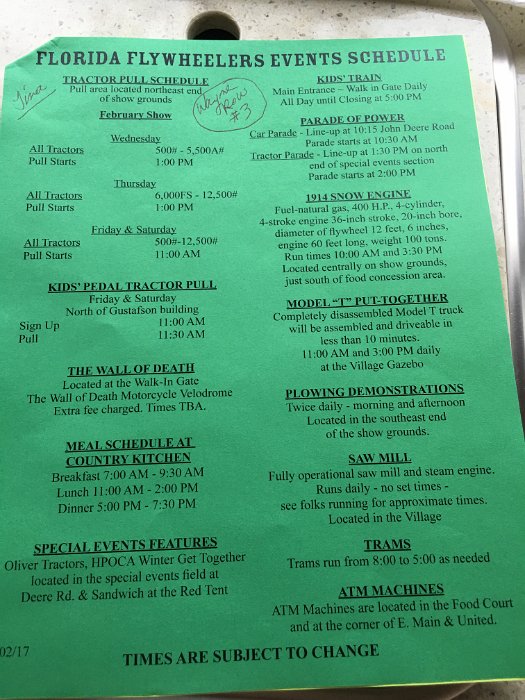 FLORIDA FLYWHEELERS EVENTS SCHEDULE
Tina
Wayne
Row
#3
TRACTOR PULL SCHEDULE
Pull area located northeast end
of show grounds
February Show
Wednesday
All Tractors 500# - 5,500A#
Pull Starts 1:00 PM
Thursday
All Tractors 6,000FS - 12,500#
Pull Starts 1:00 PM
Friday & Saturday
All Tractors 500#-12,500#
Pull Starts 11:00 AM
KIDS' PEDAL TRACTOR PULL
Friday & Saturday
North of Gustafson building
Sign Up 11:00 AM
Pull 11:30 AM
THE WALL OF DEATH
Located at the Walk-In Gate
The Wall of Death Motorcycle Velodrome
Extra fee charged. Times TBA.
MEAL SCHEDULE AT
COUNTRY KITCHEN
Breakfast 7:00 AM - 9:30 AM
Lunch 11:00 AM - 2:00 PM
Dinner 5:00 PM - 7:30 PM
SPECIAL EVENTS FEATURES
Oliver Tractors, HPOCA Winter Get Together
located in the special events field at
Deere Rd. & Sandwich at the Red Tent
KIDS' TRAIN
Main Entrance ~ Walk in Gate Daily
All Day until Closing at 5:00 PM
PARADE OF POWER
Car Parade - Line-up at 10:15 John Deere Road
Parade starts at 10:30 AM
Tractor Parade - Line-up at 1:30 PM on north
end of special events section
Parade starts at 2:00 PM
1914 SNOW ENGINE
Fuel-natural gas, 400 H.P., 4-cylinder,
4-stroke engine 36-inch stroke, 20-inch bore,
diameter of flywheel 12 feet, 6 inches,
engine 60 feet long, weight 100 tons.
Run times 10:00 AM and 3:30 PM
Located centrally on show grounds,
just south of food concession area.
MODEL "T" PUT-TOGETHER
Completely disassembled Model T truck
will be assembled and driveable in
less than 10 minutes.
11:00 AM and 3:00 PM daily
at the Village Gazebo
PLOWING DEMONSTRATIONS
Twice daily - morning and afternoon
Located in the southeast end
of the show grounds.
SAW MILL
Fully operational saw mill and steam engine.
Runs daily - no set times -
see folks running for approximate times.
Located in the Village
TRAMS
Trams run from 8:00 to 5:00 as needed
ATM MACHINES
ATM Machines are located in the Food Court
and at the corner of E. Main & United.
02/17
TIMES ARE SUBJECT TO CHANGE